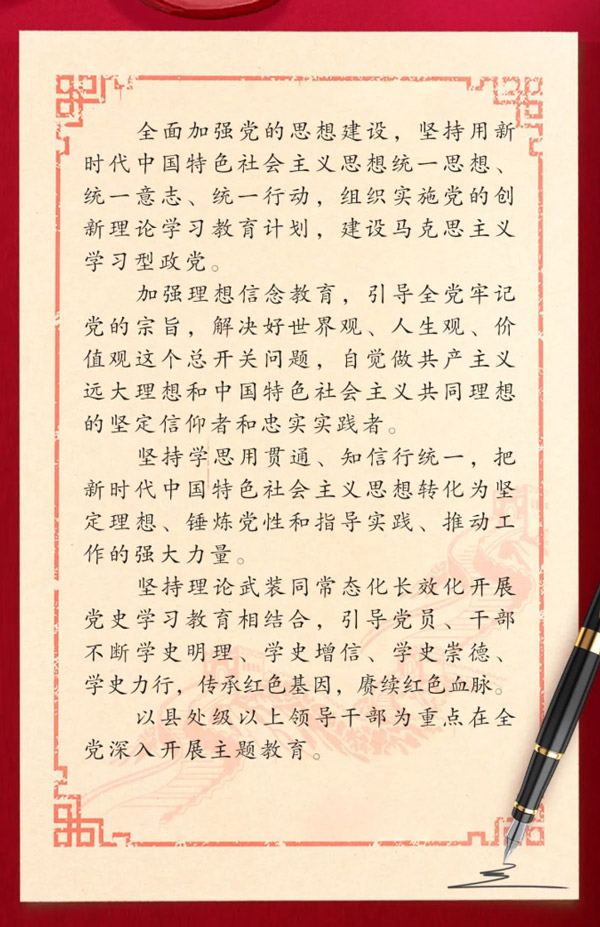 全面加强党的思想建设，坚持用新
时代中国特色社会主义思想统一思想、
统一意志、统一行动，组织实施党的创
新理论学习教育计划，建设马克思主义
学习型政党。
加强理想信念教育，引导全党牢记
党的宗旨，解决好世界观、人生观、价
值观这个总开关问题，自觉做共产主义
远大理想和中国特色社会主义共同理想
的坚定信仰者和忠实实践者。
坚持学思用贯通、知信行统一，把
新时代中国特色社会主义思想转化为坚
定理想、锤炼党性和指导实践、推动工
作的强大力量。
坚持理论武装同常态化长效化开展
党史学习教育相结合，引导党员、干部
不断学史明理、学史增信、学史崇德、
学史力行，传承红色基因，赓续红色血脉。
以县处级以上领导干部为重点在全
党深入开展主题教育。